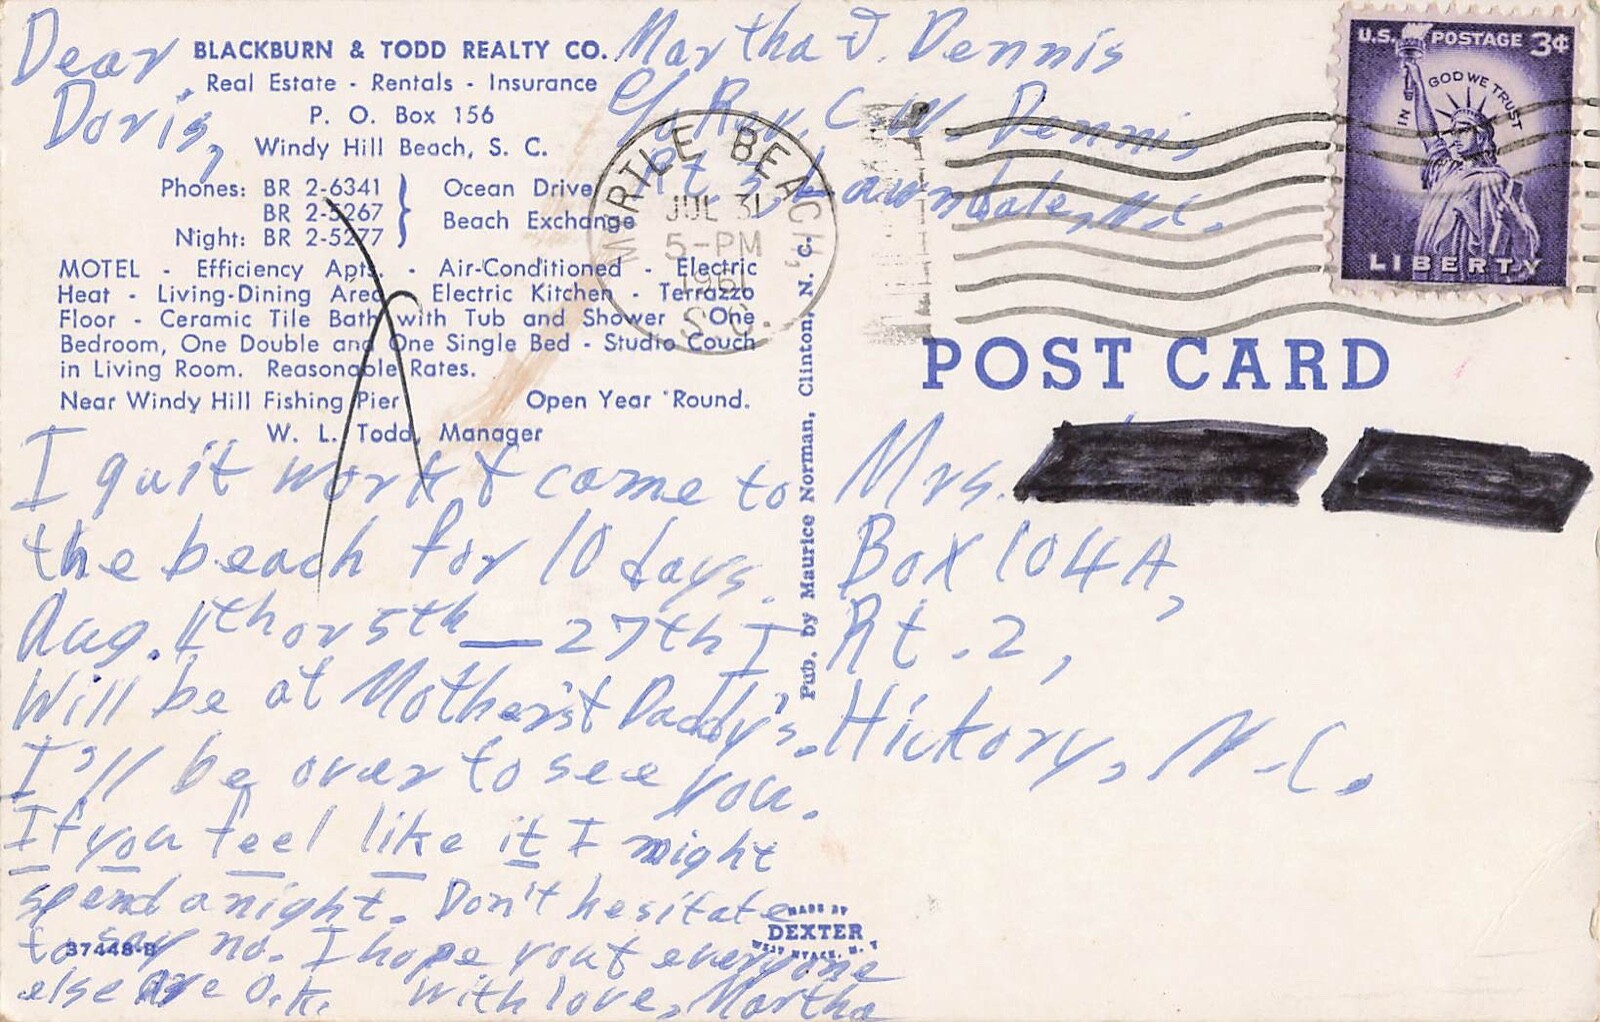 Dear
Doris,
BLACKBURN & TODD REALTY CO.
Real Estate - Rentals - Insurance
P. O. Box 156
Windy Hill Beach, S. C.
Phones: BR 2-6341
BR 2-5267
Night: BR 2-5277
Ocean Drive
Beach Exchange
MOTEL - Efficiency Apts. - Air-Conditioned - Electric
Heat - Living-Dining Area - Electric Kitchen - Terrazzo
Floor - Ceramic Tile Bath with Tub and Shower - One
Bedroom, One Double and One Single Bed - Studio Couch
in Living Room. Reasonable Rates.
Near Windy Hill Fishing Pier Open Year 'Round.
W. L. Todd, Manager
I quit work & come to
the beach for 10 days.
Aug. 4th or 5th — 27th I
Will be at Mother's & Daddy's.
I'll be over to see you.
If you feel like it I might
spend a night. Don't hesitate
to say no. I hope you & everyone
else are O.K. With love, Martha
37448-B
Martha J. Dennis
c/o Rev. C. W. Dennis
Rt. 3 Lawndale, N.C.
MYRTLE BEACH,
JUL 31
5-PM
1961
S.C.
U.S. POSTAGE 3¢
IN GOD WE TRUST
LIBERTY
POST CARD
Mrs.
Box 104A,
Rt. 2,
Hickory, N.C.
Pub. by Maurice Norman, Clinton, N. C.
MADE BY
DEXTER
WEST NYACK, N. Y.